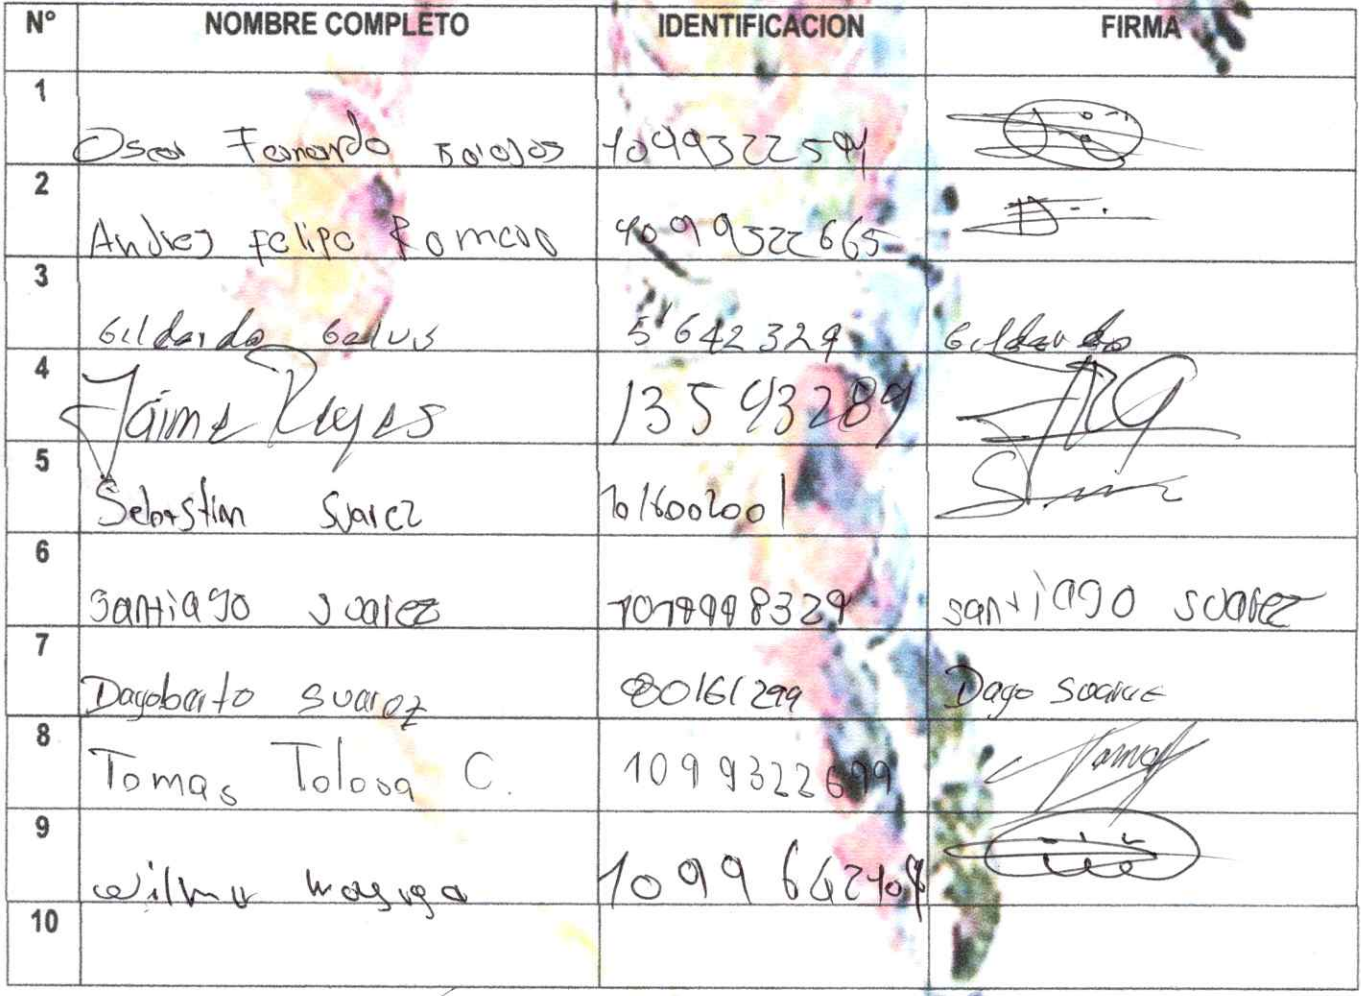 N° NOMBRE COMPLETO IDENTIFICACION FIRMA
1 Oscar Fernando 1099322594
2 Andres Felipe Roman 1099322665
3 Gildardo Galvis 5'642329 Gildardo
4 Jaime Reyes 13593289
5 Sebastian Suarez 1016002001
6 Santiago Suarez 1019998329 santiago suarez
7 Dagoberto Suarez 80161299 Dago Suarez
8 Tomas Tolosa C. 1099322699 Tomas
9 Wilmer
10